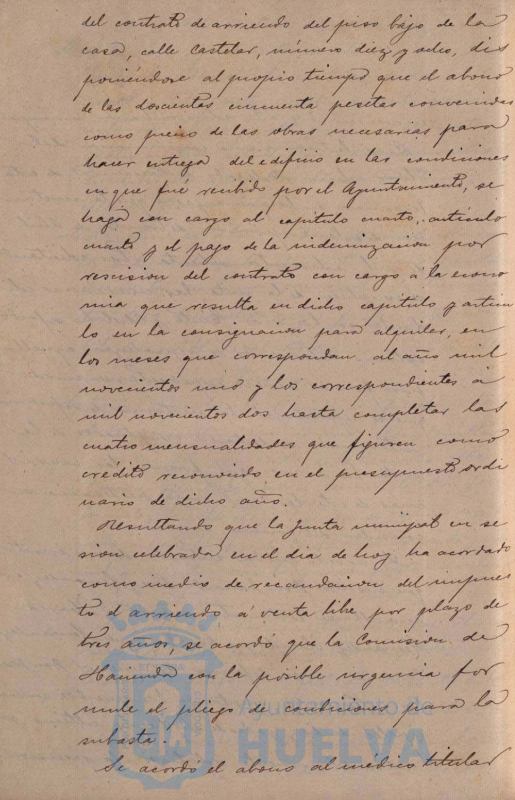 del contrato de arriendo del piso bajo de la
casa, calle Castelar, número diez y ocho, dis
poniéndose al propio tiempo que el abono
de las doscientas cincuenta pesetas convenidas
como precio de las obras necesarias para
hacer entrega del edificio en las condiciones
en que fué recibido por el Ayuntamiento, se
haga con cargo al capítulo cuarto, artículo
cuarto y el pago de la indemnizacion por
rescision del contrato con cargo á la econo
mia que resulta en dicho capitulo y articu
lo en la consignacion para alquiler, en
los meses que correspondan al año mil
novecientos uno y los correspondientes á
mil novecientos dos hasta completar las
cuatro mensualidades que figuren como
crédito reconocido en el presupuesto ordi
nario de dicho año.
Resultando que la Junta municipal en se
sion celebrada en el dia de hoy ha acordado
como medio de recaudacion del impues
to el arriendo á venta libe por plazo de
tres años, se acordó que la Comision de
Hacienda con la posible urgencia for
mule el pliego de condiciones para la
subasta.
Se acordó el abono al médico titular
Ayuntamiento de
HUELVA